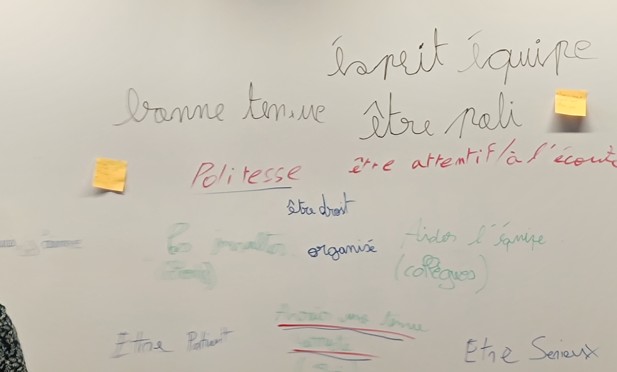 ésprit équipe
bonne tenue être poli
Politesse être attentif/à l'écoute
être droit
organisé Aider l'équipe
(colègues)
Avoir une tenue
Etre Patient Etre Serieux